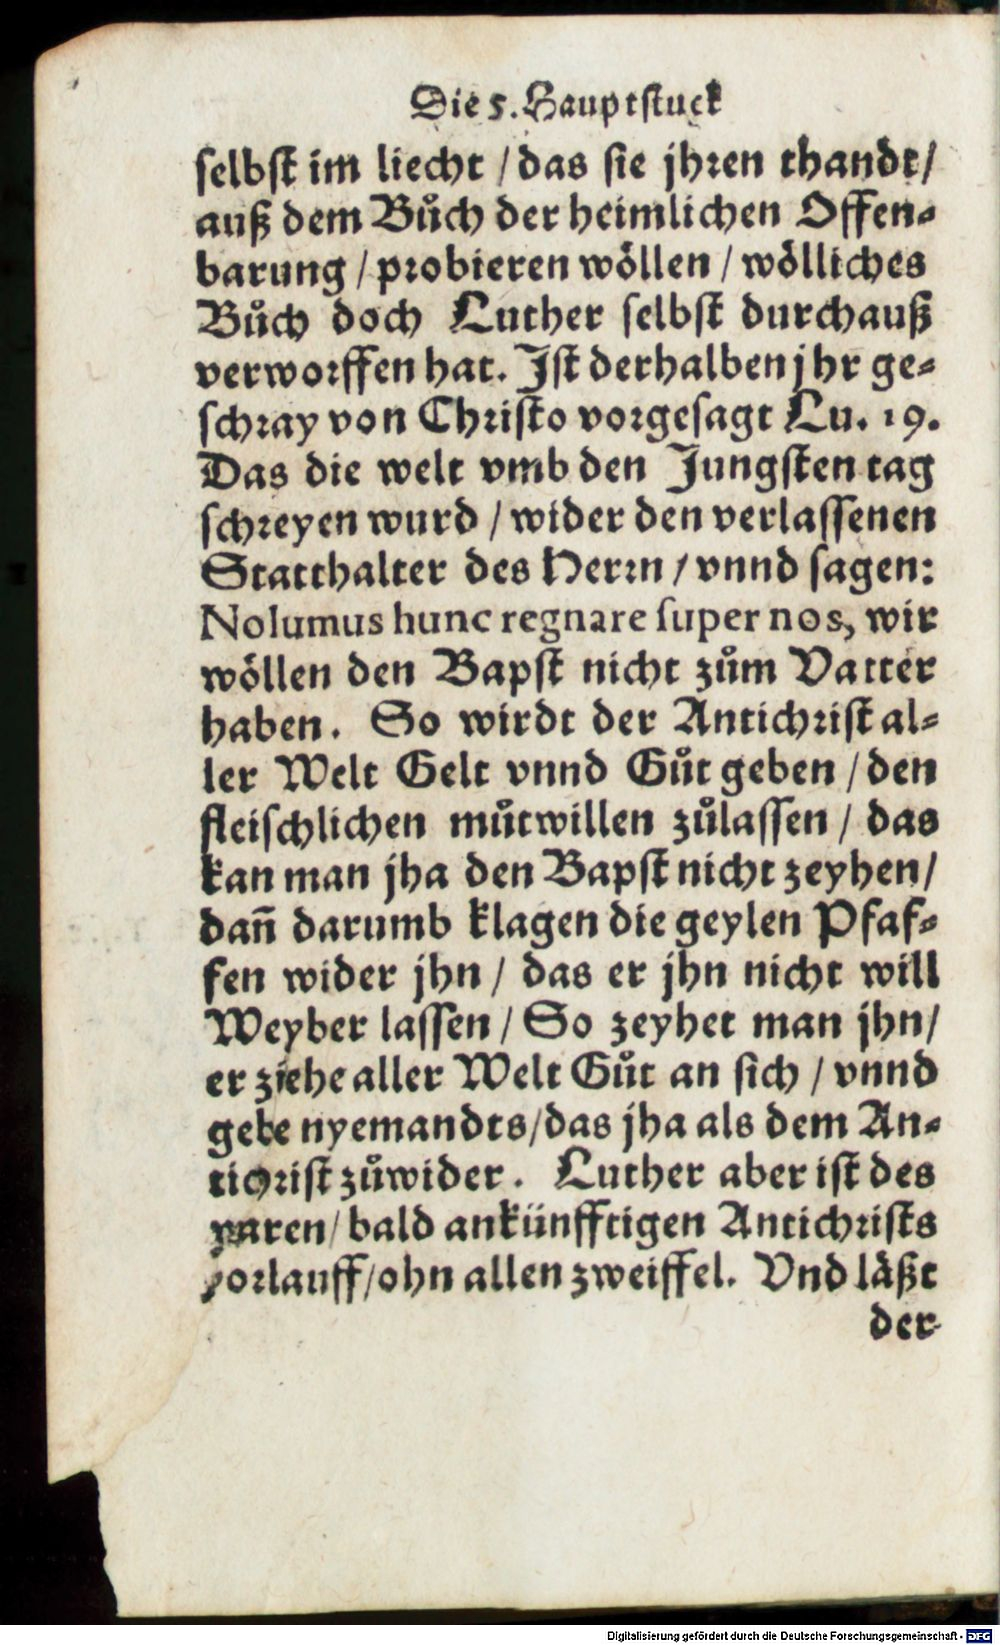 Die 5. Hauptstuck
selbst im liecht / das sie jhren thandt /
auß dem Bůch der heimlichen Offen-
barung / probieren wöllen / wölliches
Bůch doch Luther selbst durchauß
verworffen hat. Ist derhalben jhr ge-
schray von Christo vorgesagt Lu. 19.
Das die welt vmb den Jungsten tag
schreyen wurd / wider den verlassenen
Statthalter des Herrn / vnnd sagen:
Nolumus hunc regnare super nos, wir
wöllen den Bapst nicht zům Vatter
haben. So wirdt der Antichrist al-
ler Welt Gelt vnnd Gůt geben / den
fleischlichen můtwillen zůlassen / das
kan man jha den Bapst nicht zeyhen /
dañ darumb klagen die geylen Pfaf-
fen wider jhn / das er jhn nicht will
Weyber lassen / So zeyhet man jhn /
er ziehe aller Welt Gůt an sich / vnnd
gebe nyemandts / das jha als dem An-
tichrist zůwider. Luther aber ist des
waren / bald ankünfftigen Antichrists
vorlauff / ohn allen zweiffel. Vnd läßt
der
Digitalisierung gefördert durch die Deutsche Forschungsgemeinschaft - DFG